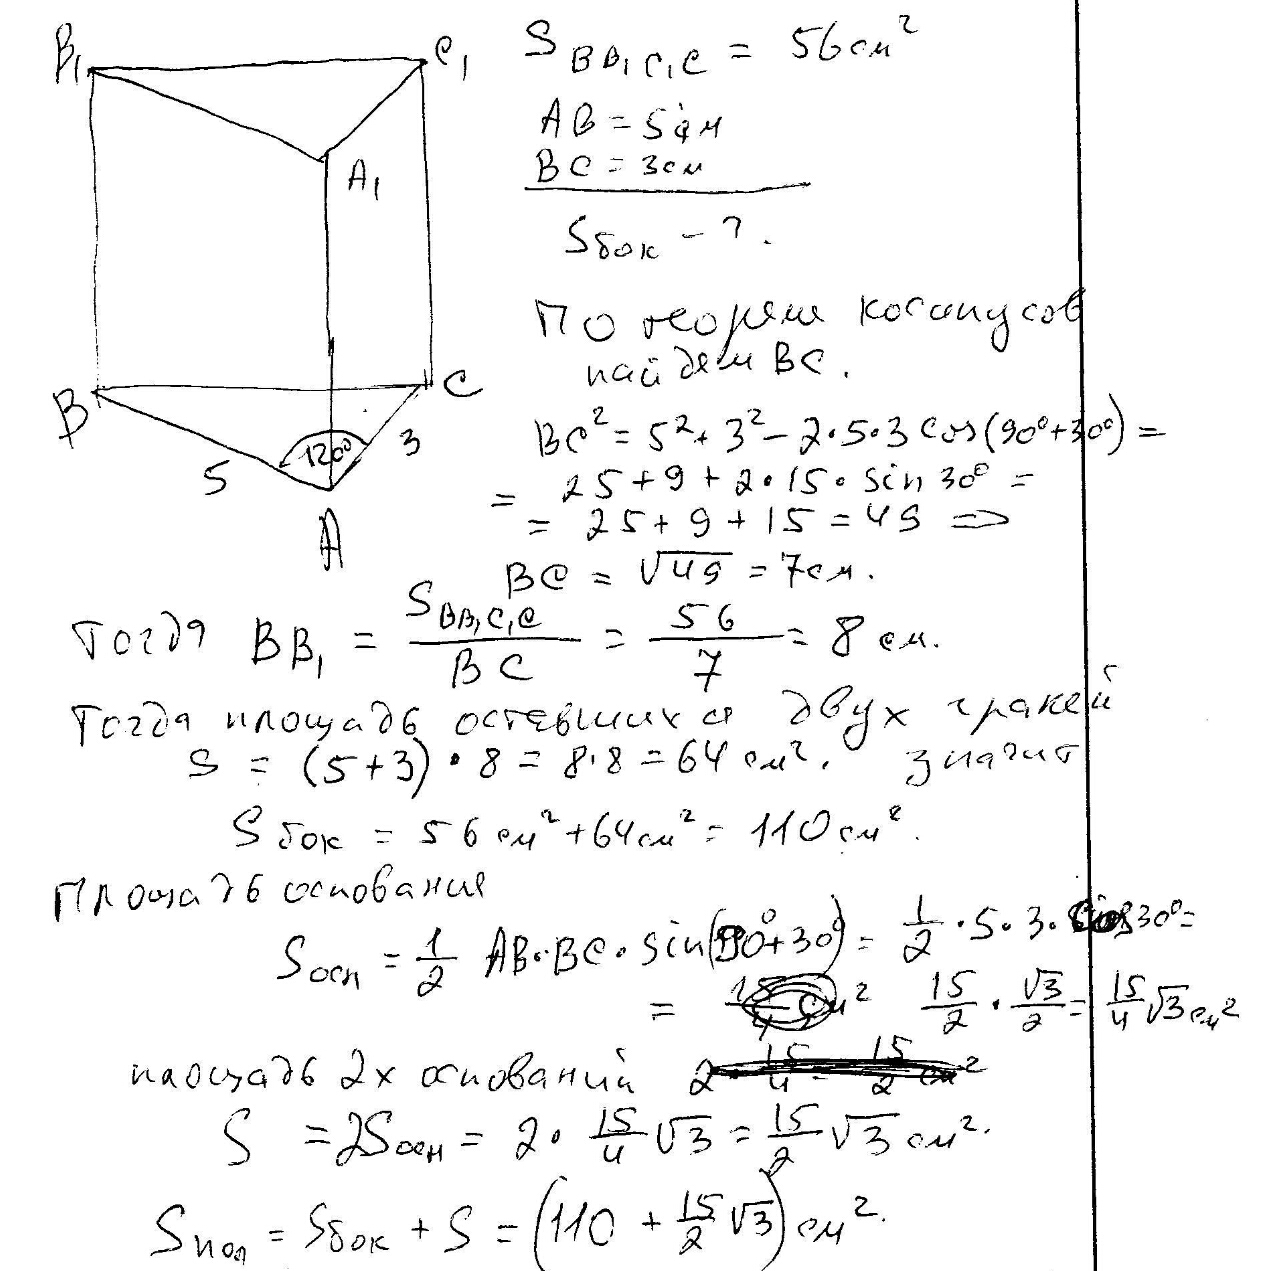 B₁
C₁
A₁
B
C
120°
5
3
A
S BB₁C₁C = 56 см²
AB = 5 см
BC = 3 см
Sбок - ?.
По теореме косинусов
найдем BC.
BC² = 5² + 3² - 2·5·3 cos(90°+30°) =
= 25 + 9 + 2·15·sin 30° =
= 25 + 9 + 15 = 49 =>
BC = √49 = 7 см.
Тогда BB₁ = S BB₁C₁C / BC = 56/7 = 8 см.
Тогда площадь оставшихся двух граней
S = (5+3)·8 = 8·8 = 64 см². значит
Sбок = 56 см² + 64 см² = 110 см².
Площадь основания
Sосн = 1/2 AB·BC·sin(90°+30°) = 1/2 ·5·3·cos 30° =
= см² 15/2 · √3/2 = 15/4 √3 см²
площадь 2х оснований
S = 2Sосн = 2· 15/4 √3 = 15/2 √3 см².
Sпол = Sбок + S = (110 + 15/2 √3) см².